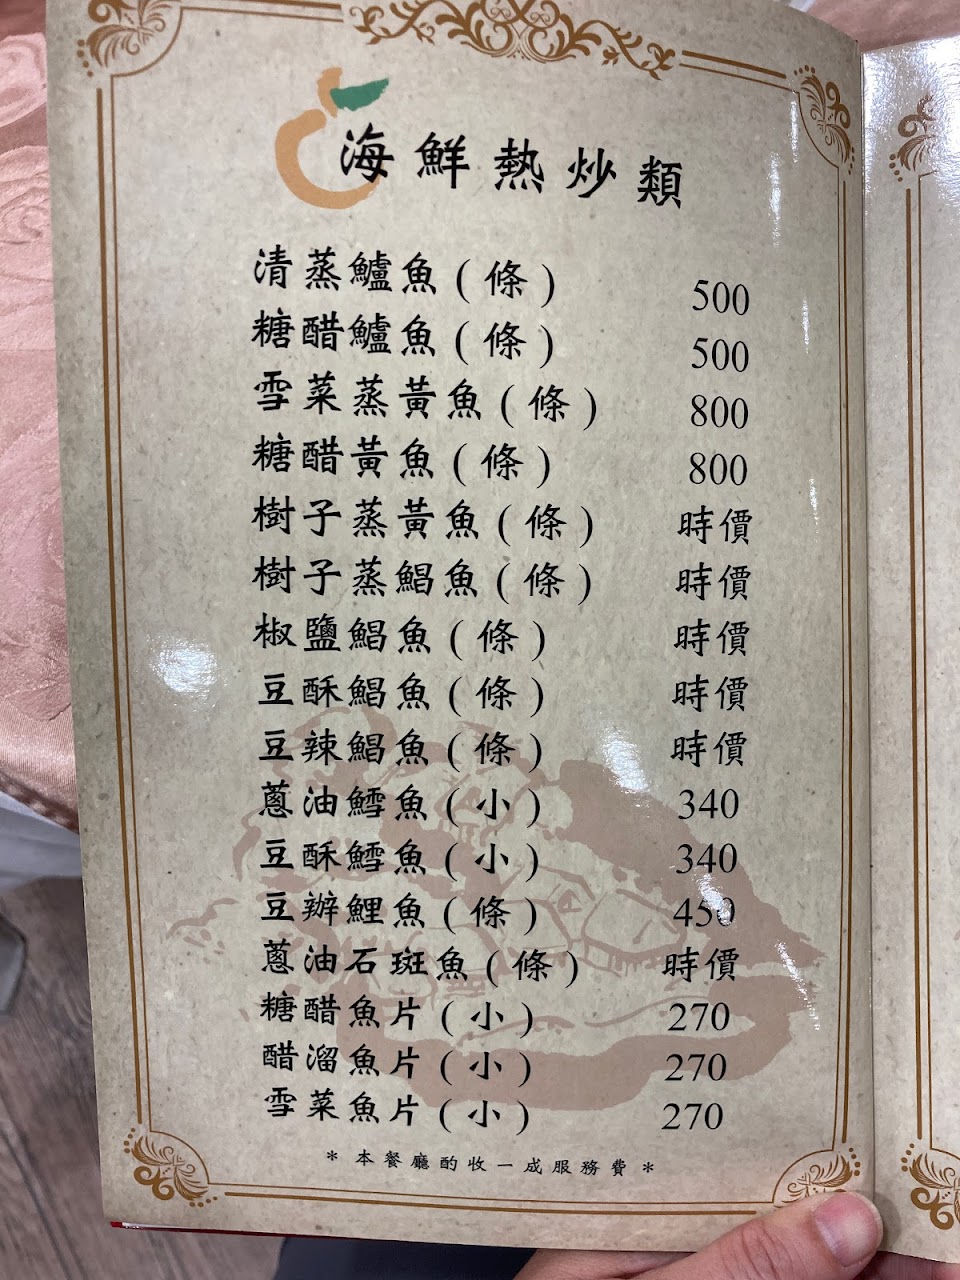 海鮮熱炒類
清蒸鱸魚(條) 500
糖醋鱸魚(條) 500
雪菜蒸黃魚(條) 800
糖醋黃魚(條) 800
樹子蒸黃魚(條) 時價
樹子蒸鯧魚(條) 時價
椒鹽鯧魚(條) 時價
豆酥鯧魚(條) 時價
豆辣鯧魚(條) 時價
蔥油鱈魚(小) 340
豆酥鱈魚(小) 340
豆瓣鯉魚(條) 450
蔥油石斑魚(條) 時價
糖醋魚片(小) 270
醋溜魚片(小) 270
雪菜魚片(小) 270
*本餐廳酌收一成服務費*